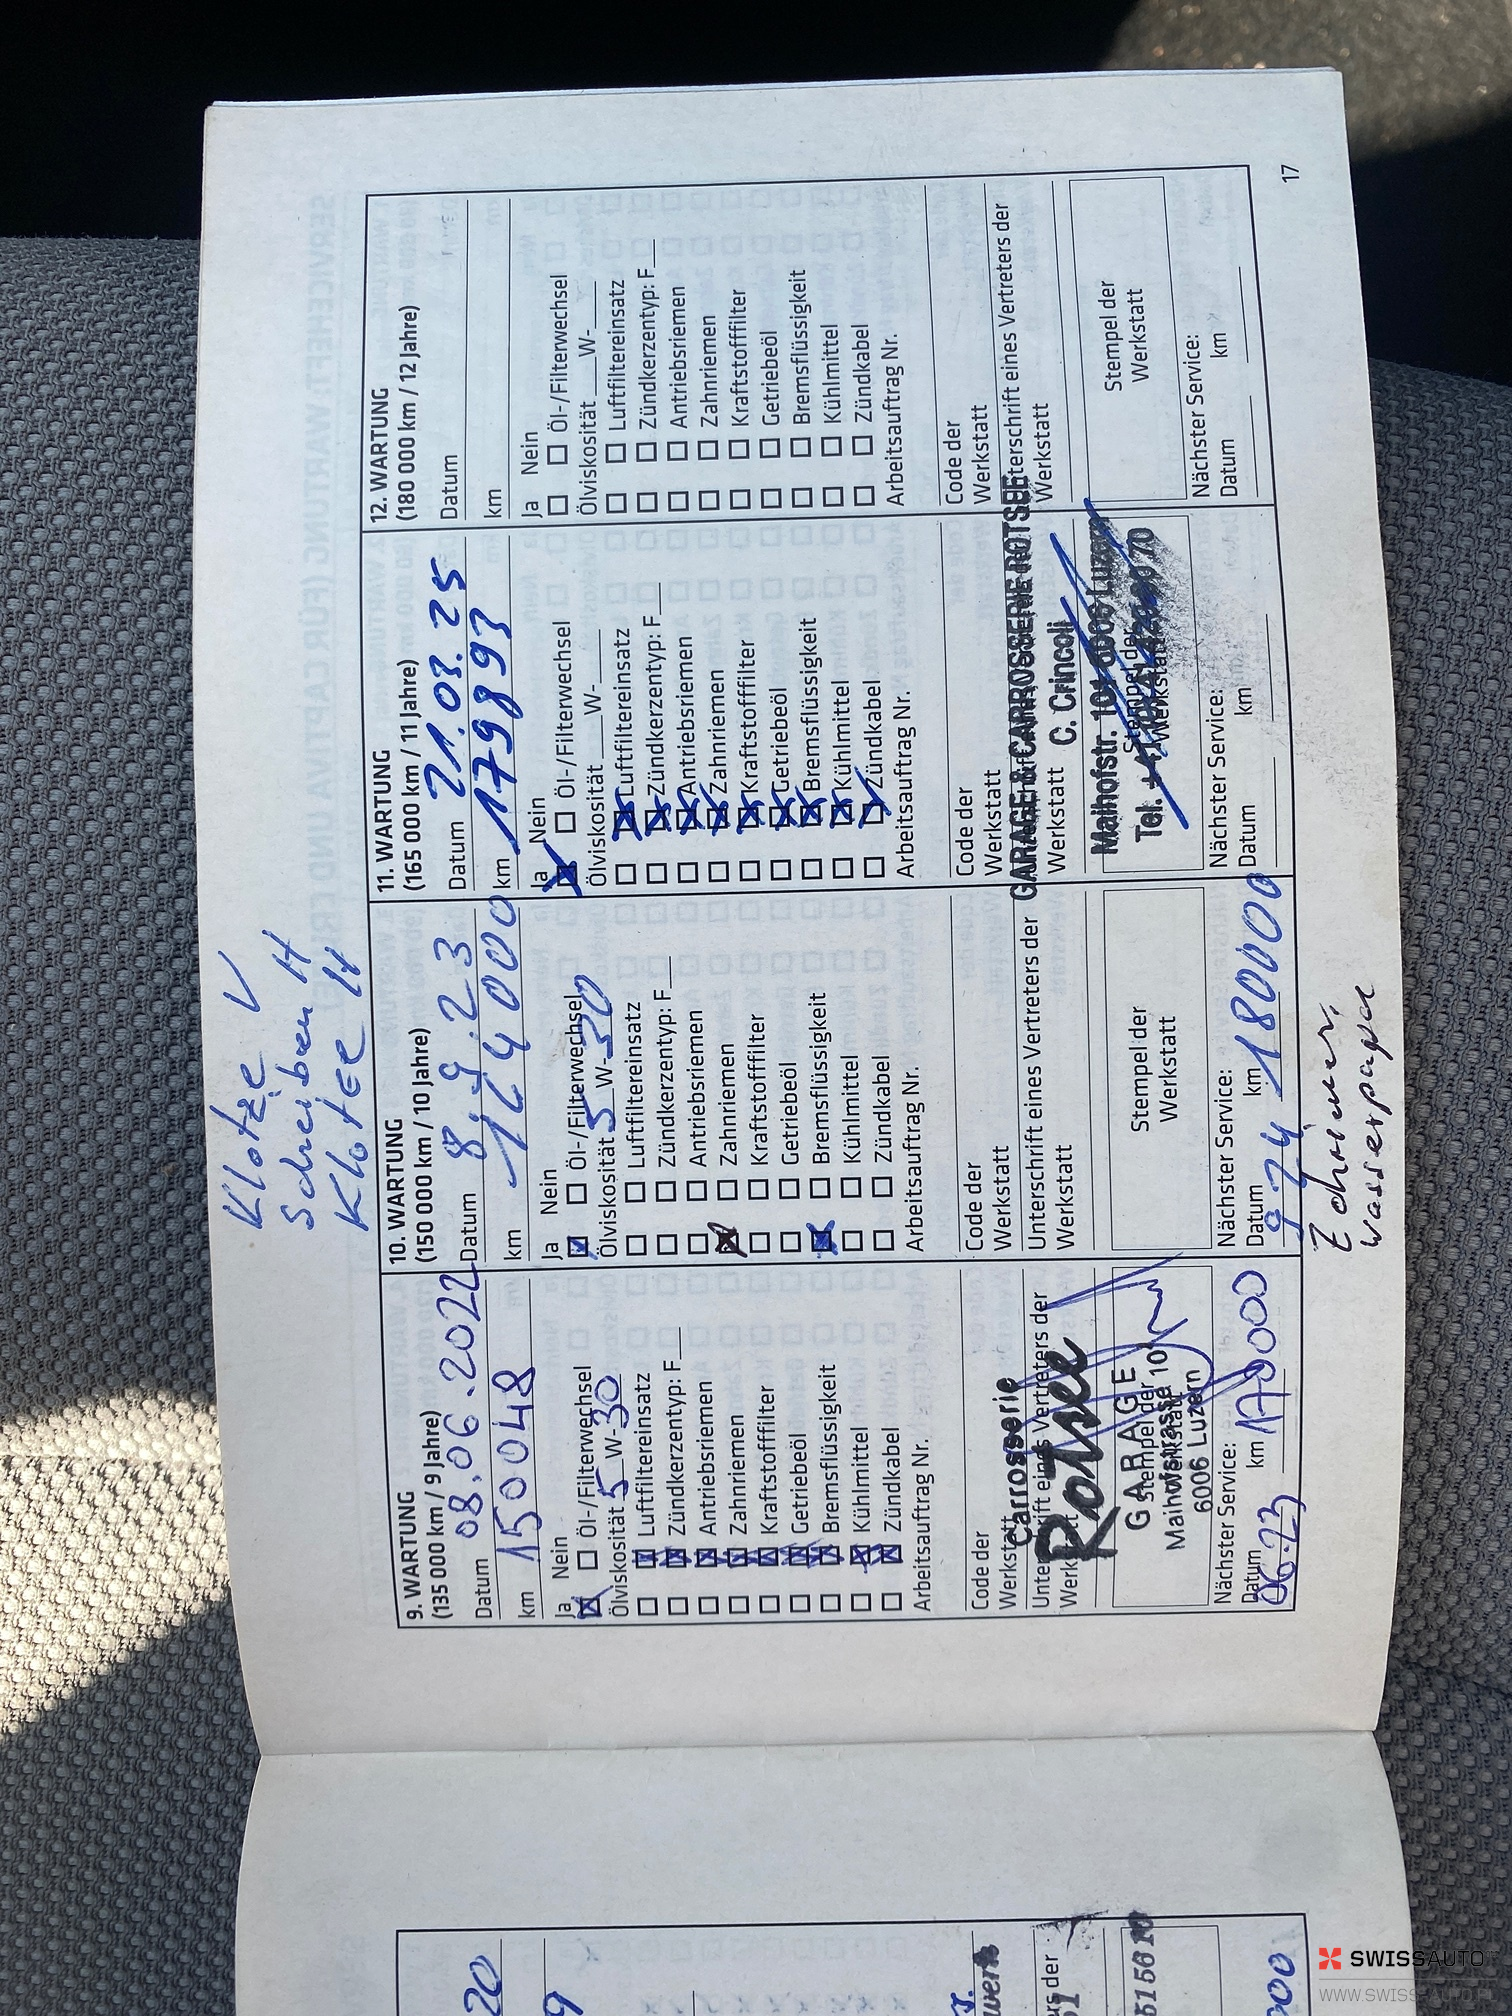 Klotze V
Scheiben H
Klotze H
9. WARTUNG
(135 000 km / 9 Jahre)
Datum 08.06.2022
km 150048
Ja Nein
Öl-/Filterwechsel
Ölviskosität 5 W-30
Luftfiltereinsatz
Zündkerzentyp: F__
Antriebsriemen
Zahnriemen
Kraftstofffilter
Getriebeöl
Bremsflüssigkeit
Kühlmittel
Zündkabel
Arbeitsauftrag Nr.
Code der
Werkstatt
Unterschrift eines Vertreters der
Werkstatt
Carrosserie
Rotsee
GARAGE
Stempel der
Werkstatt
Maihofstrasse 101
6006 Luzern
Nächster Service:
Datum km
06.23 17000
10. WARTUNG
(150 000 km / 10 Jahre)
Datum 8.9.23
km 164000
Ja Nein
Öl-/Filterwechsel
Ölviskosität 5 W-30
Luftfiltereinsatz
Zündkerzentyp: F__
Antriebsriemen
Zahnriemen
Kraftstofffilter
Getriebeöl
Bremsflüssigkeit
Kühlmittel
Zündkabel
Arbeitsauftrag Nr.
Code der
Werkstatt
Unterschrift eines Vertreters der
Werkstatt
Stempel der
Werkstatt
Nächster Service:
Datum km
9 24 180000
11. WARTUNG
(165 000 km / 11 Jahre)
Datum 21.03.25
km 179893
Ja Nein
Öl-/Filterwechsel
Ölviskosität __W-____
Luftfiltereinsatz
Zündkerzentyp: F__
Antriebsriemen
Zahnriemen
Kraftstofffilter
Getriebeöl
Bremsflüssigkeit
Kühlmittel
Zündkabel
Arbeitsauftrag Nr.
Code der
Werkstatt
GARAGE & CARROSSERIE ROTSEE
Werkstatt C. Crincoli
Maihofstr. 101 6006 Luzern
Stempel der
Werkstatt
Tel. +41 70
Nächster Service:
Datum km
12. WARTUNG
(180 000 km / 12 Jahre)
Datum
km
Ja Nein
Öl-/Filterwechsel
Ölviskosität __W-____
Luftfiltereinsatz
Zündkerzentyp: F__
Antriebsriemen
Zahnriemen
Kraftstofffilter
Getriebeöl
Bremsflüssigkeit
Kühlmittel
Zündkabel
Arbeitsauftrag Nr.
Code der
Werkstatt
Unterschrift eines Vertreters der
Werkstatt
Stempel der
Werkstatt
Nächster Service:
Datum km
Wasserpumpe
17
20
9
SWISSAUTO